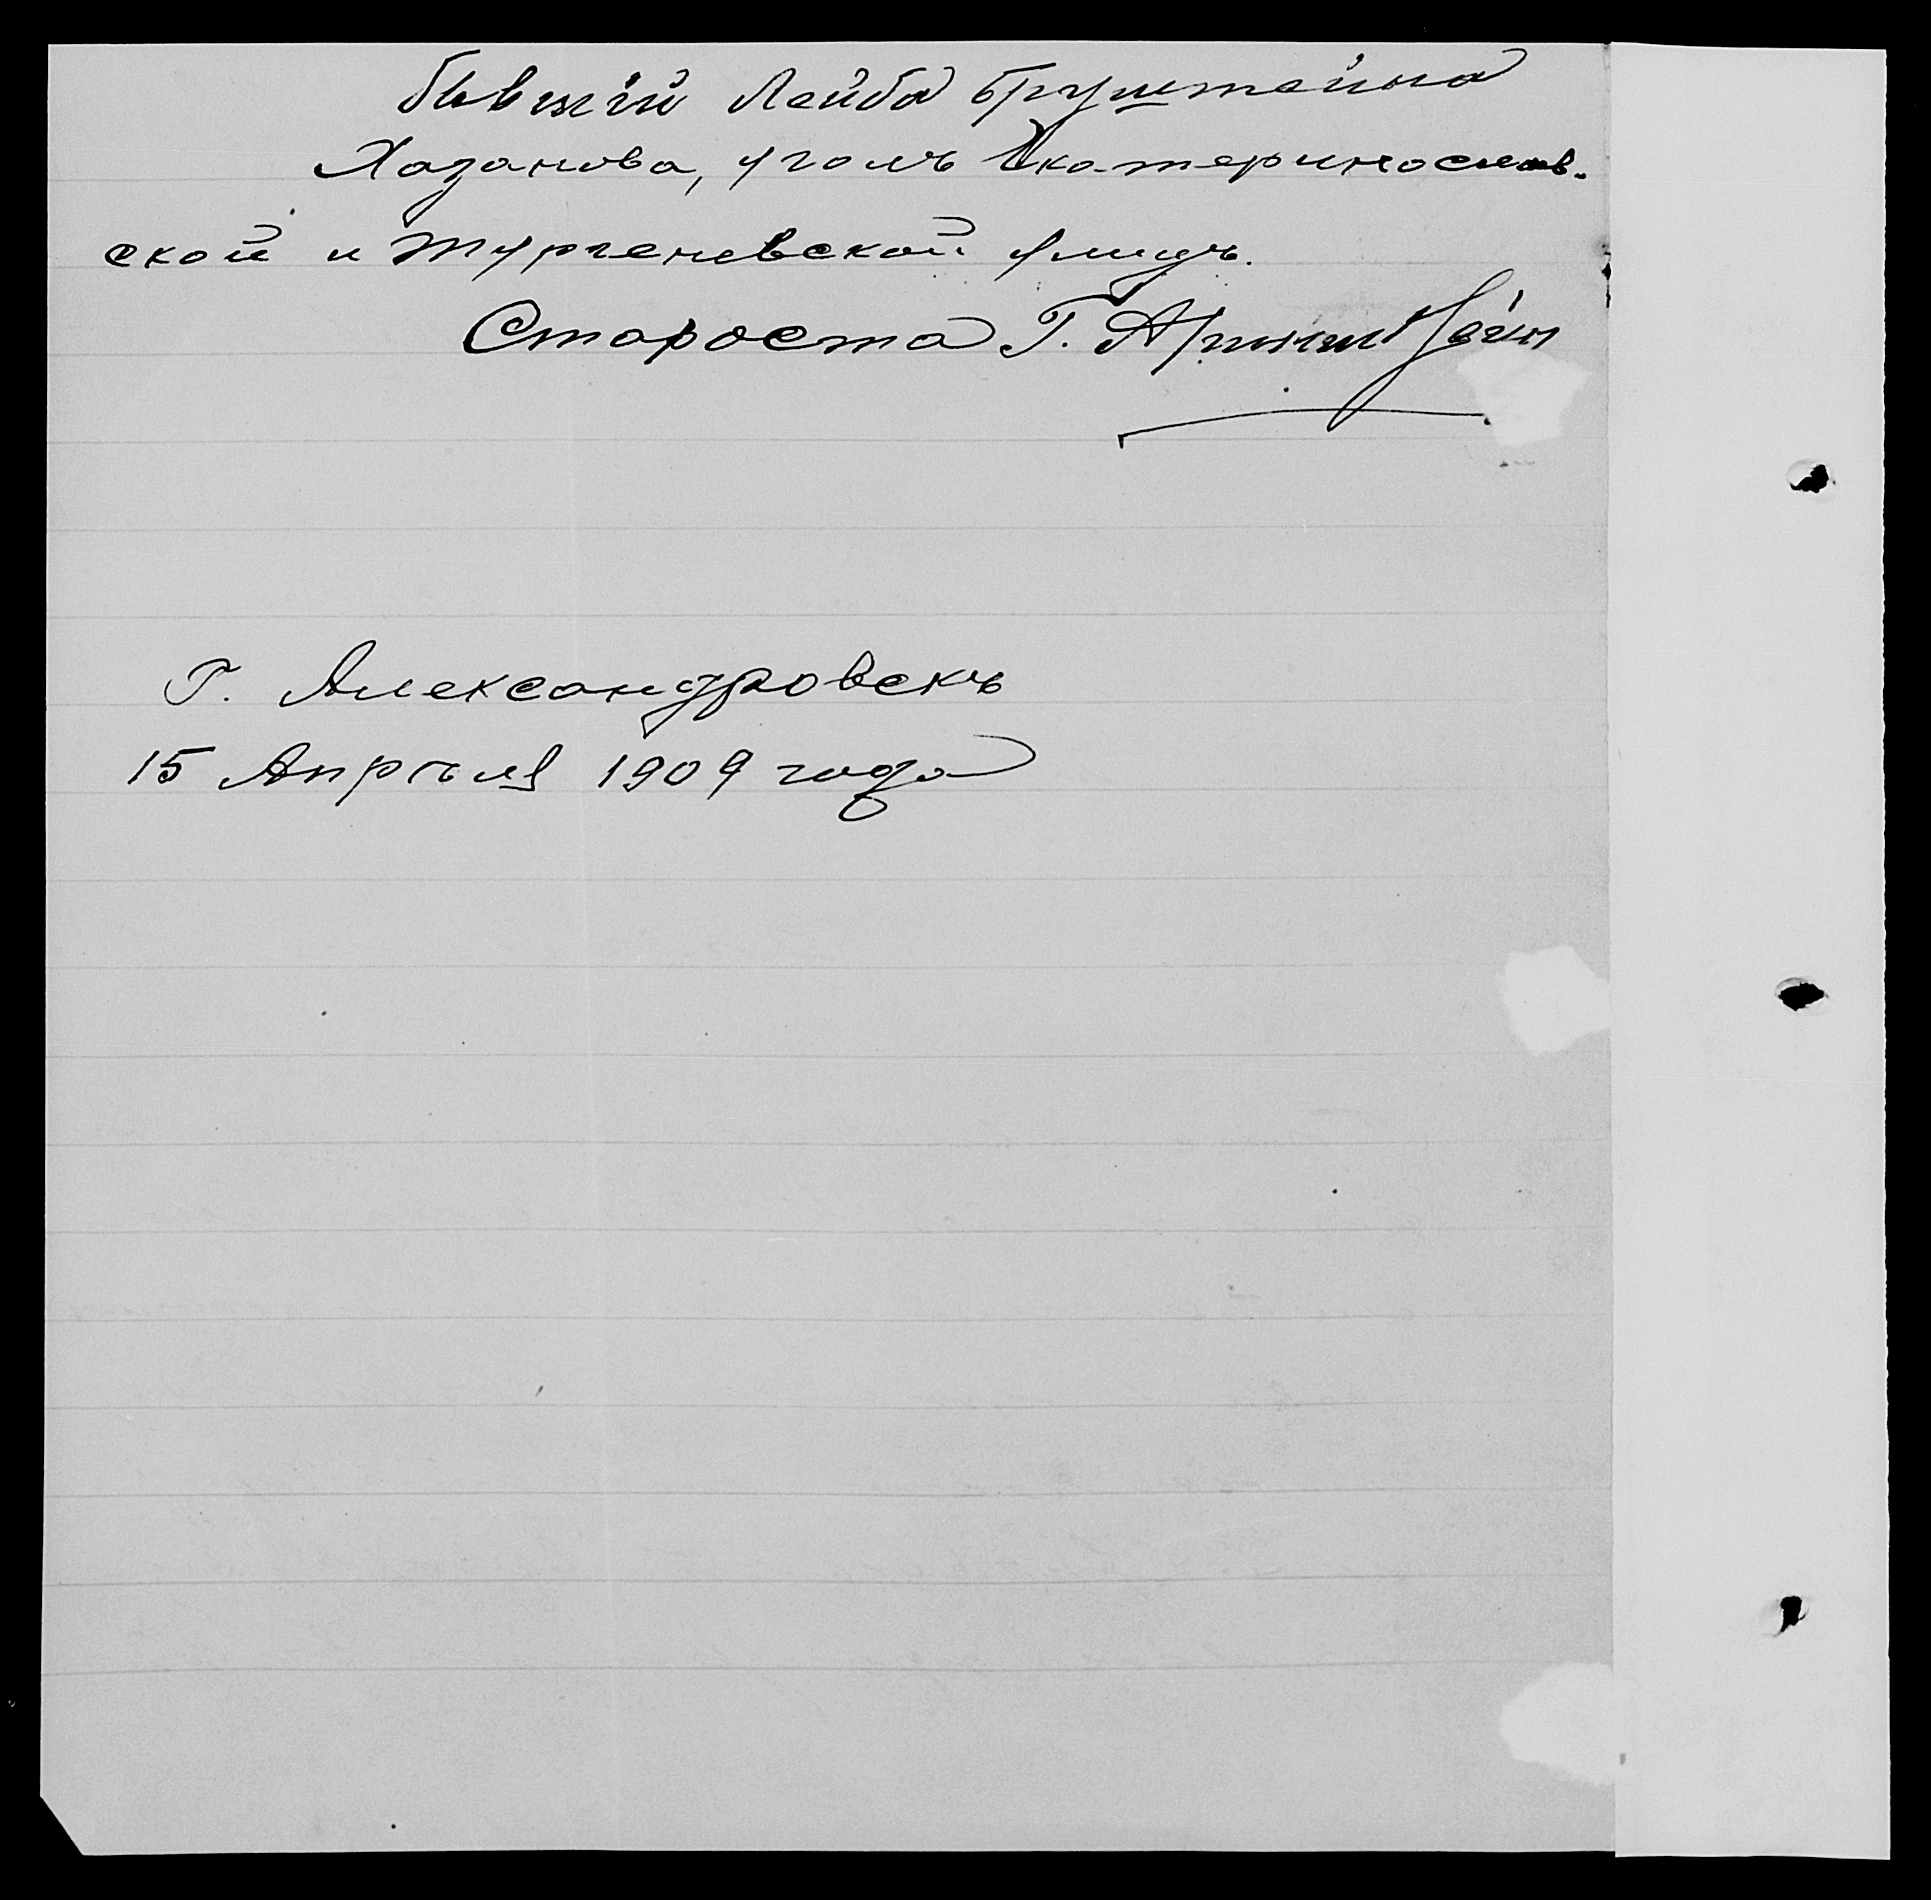 бывшій Лейба Бруштейна
Хазанова, уголъ Екатеринослав-
ской и Тургеневской улицъ.
Староста Г.
Г. Александровскъ
15 Апрѣля 1909 года